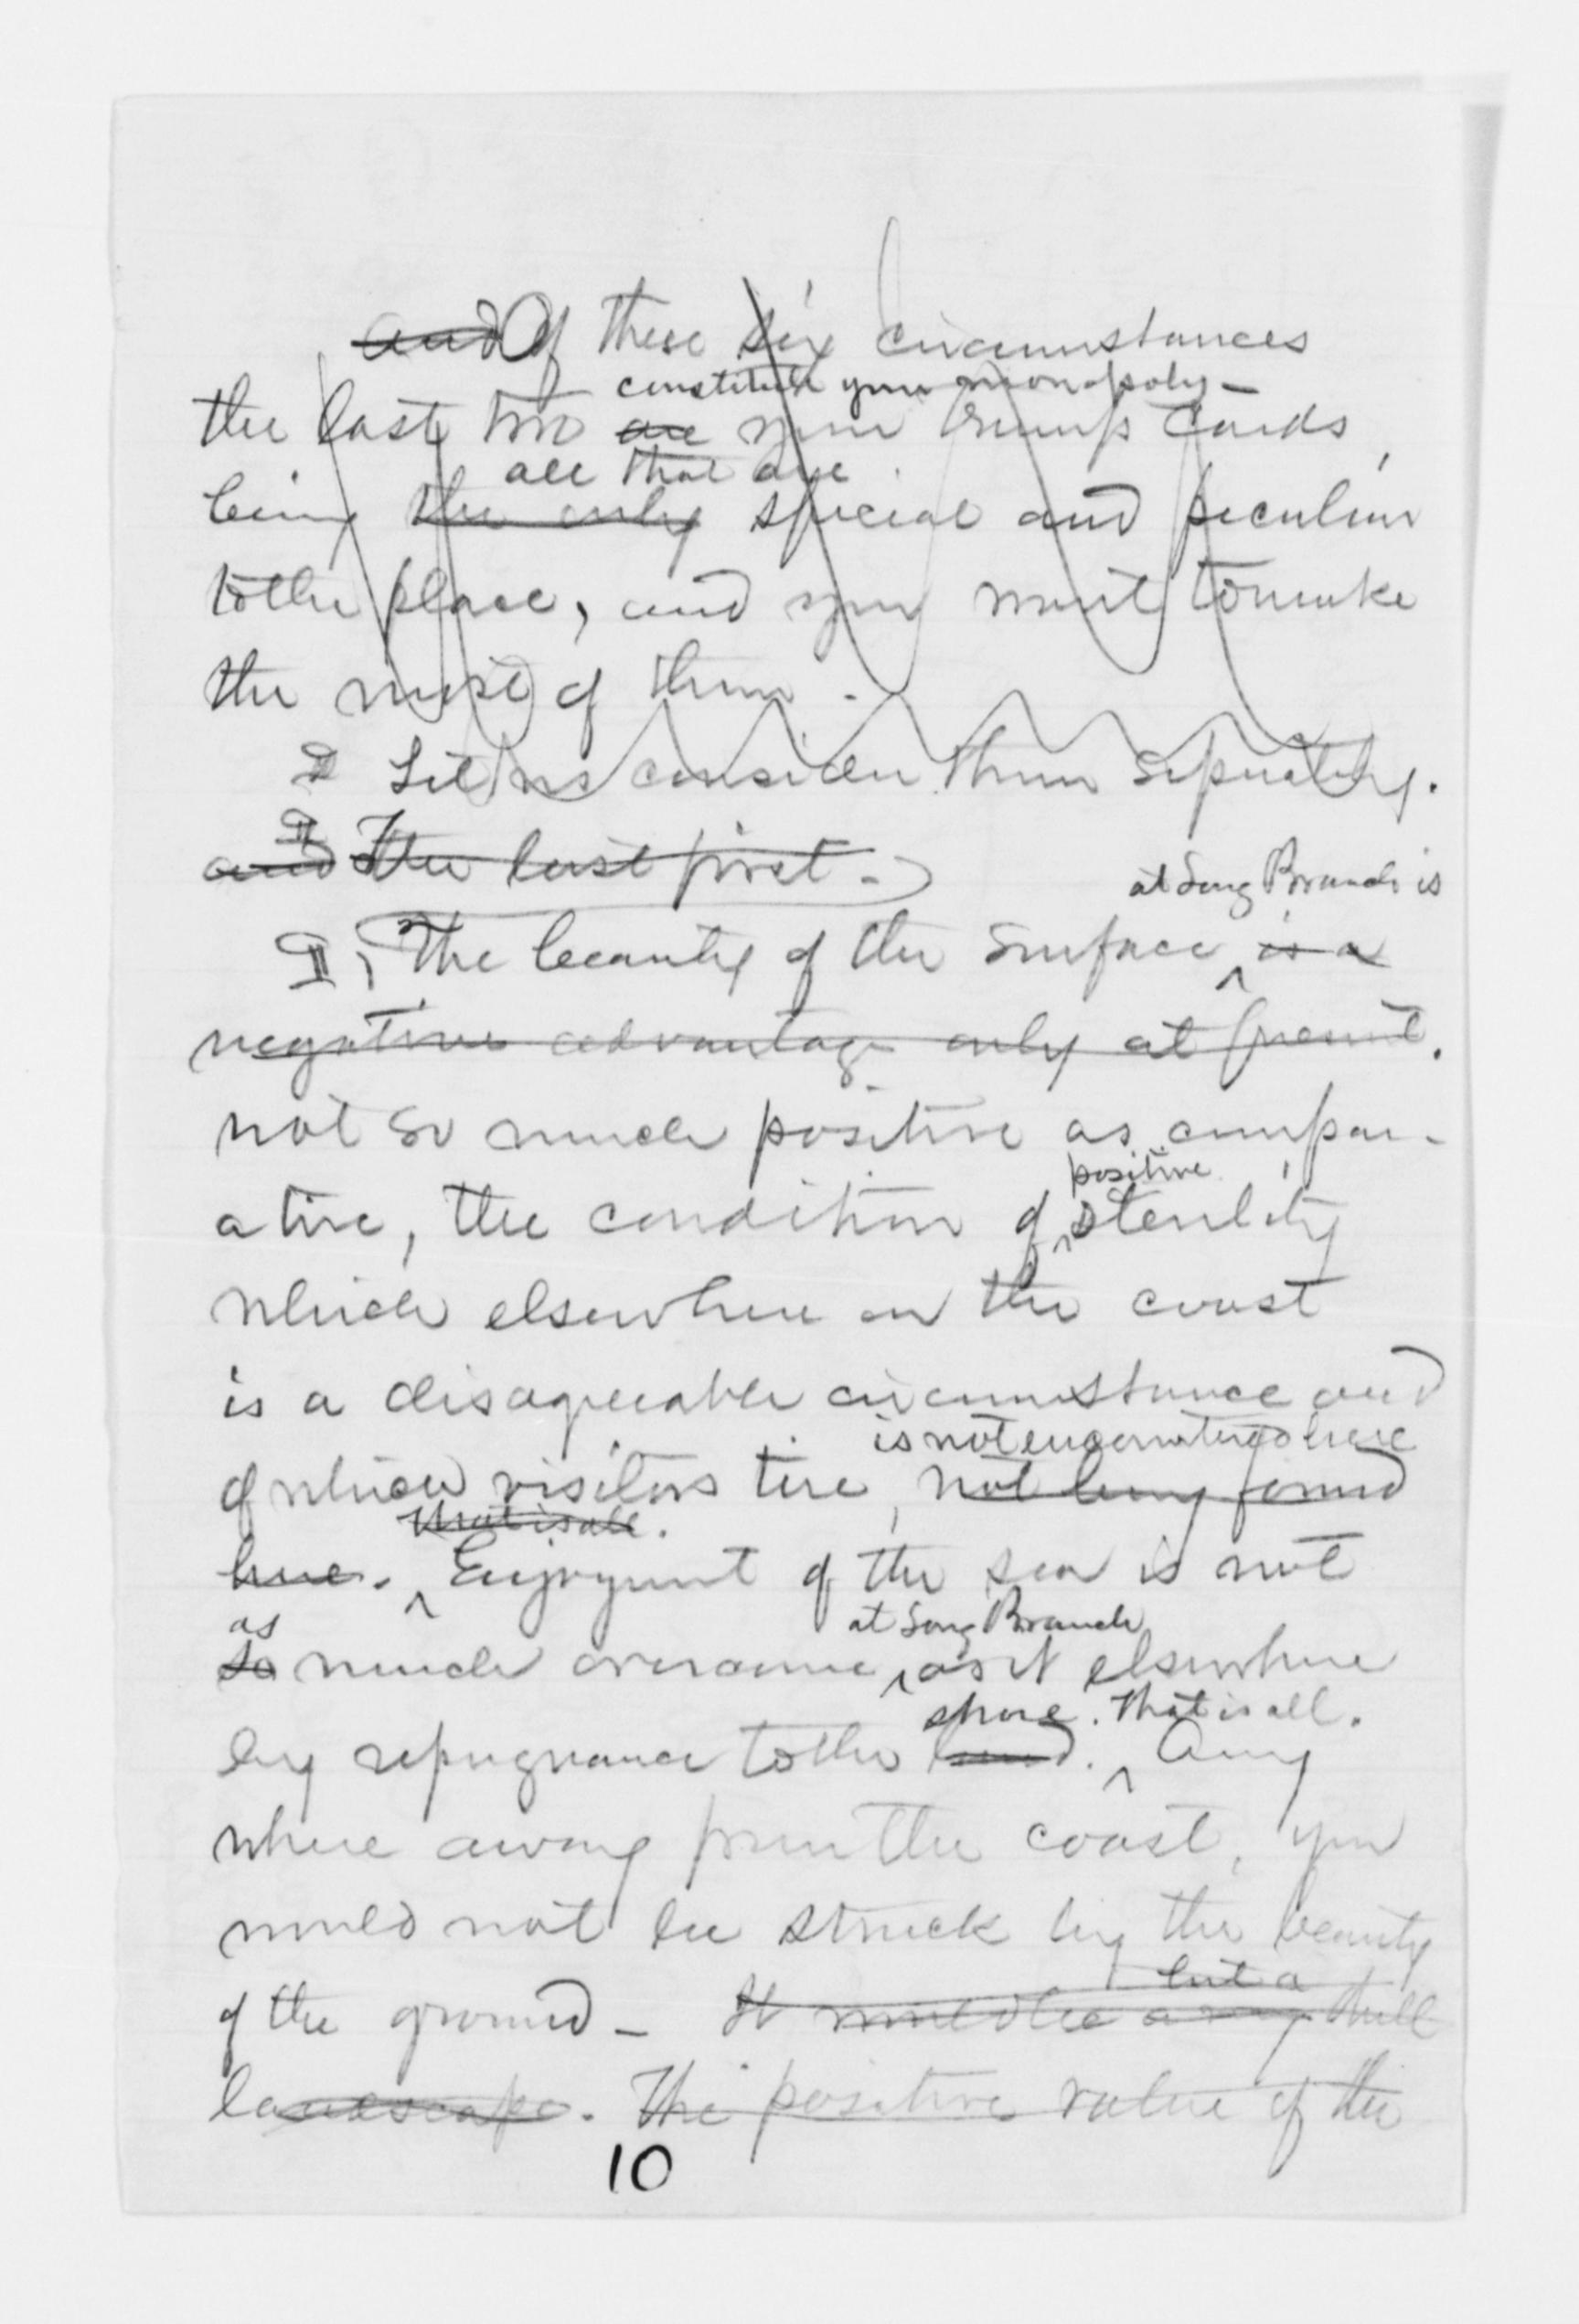 and Of these six circumstances
constitute your monopoly —
the last two are your trump cards,
all that are
being the only special and peculiar
to the place, and you want to make
the most of them.
Let us consider them separately.
and The last first.
at Long Branch is
II, The beauty of the surface is a
negative advantage only at present.
not so much positive as compar-
positive
ative, the condition of sterility
which elsewhere on the coast
is a disagreeable circumstance and
is not encountered here
of which visitors tire, not being found
that is all.
here. Enjoyment of the sea is not
as at Long Branch
so much overcome, as it elsewhere
shore. That is all.
by repugnance to the land. Any
where away from the coast, you
would not be struck by the beauty
but a
of the ground — It would be a very dull
landscape. The positive value of the
10